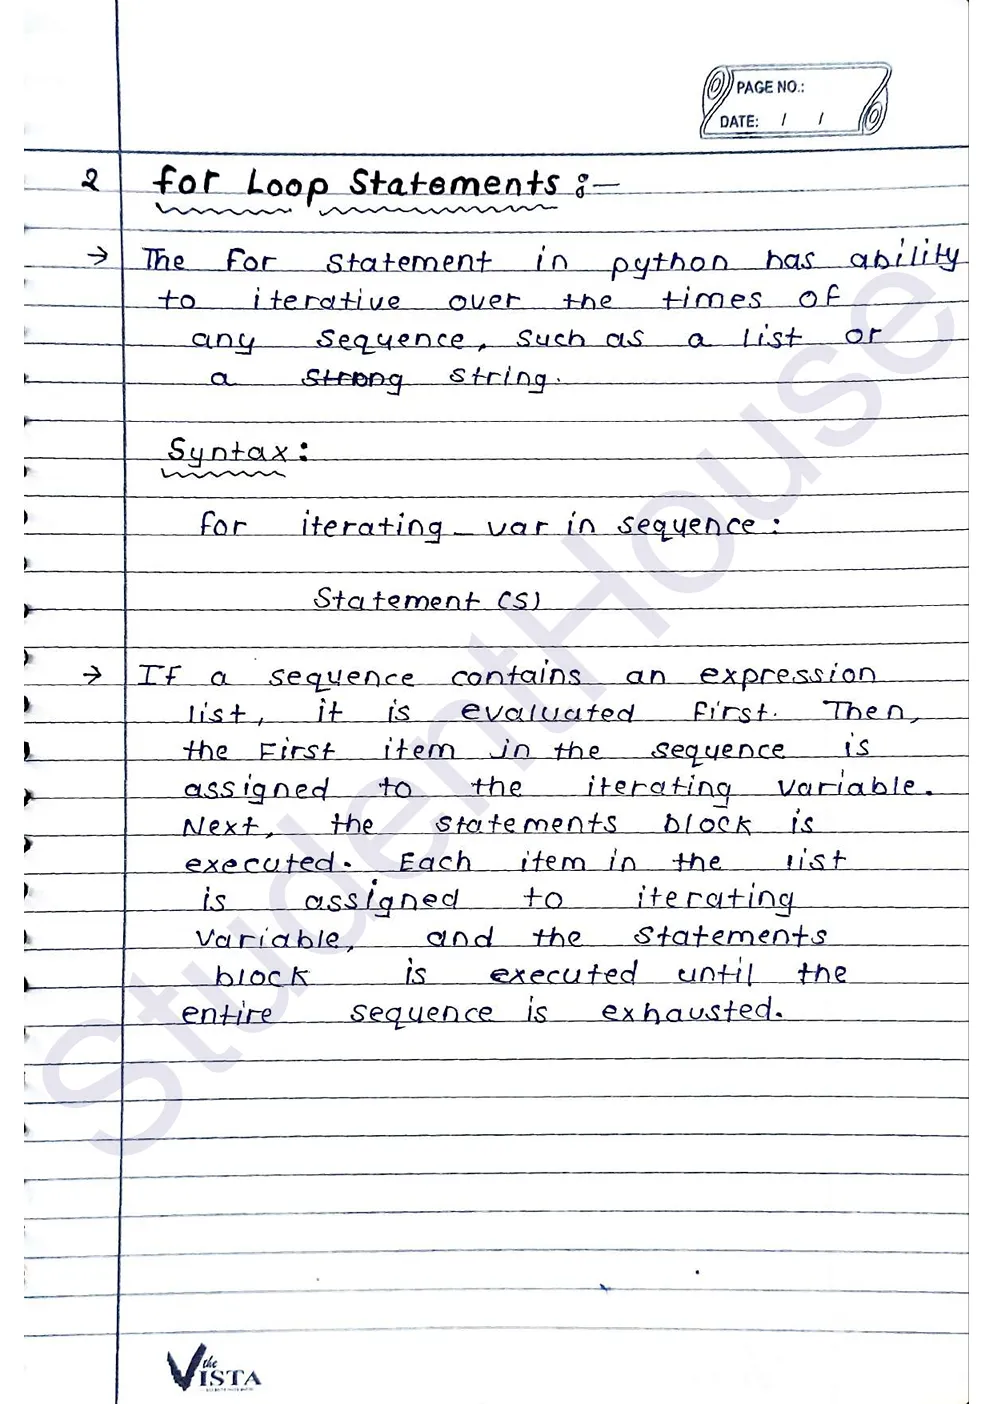 PAGE NO.:
DATE: / /
2 for Loop Statements :-
→ The For statement in python has ability
to iterative over the times of
any sequence, such as a list or
a strong string.
Syntax:
for iterating_var in sequence:
Statement (s)
→ If a sequence contains an expression
list, it is evaluated first. Then,
the First item in the sequence is
assigned to the iterating variable.
Next, the statements block is
executed. Each item in the list
is assigned to iterating
Variable, and the Statements
block is executed until the
entire sequence is exhausted.
StudentHouse
the VISTA